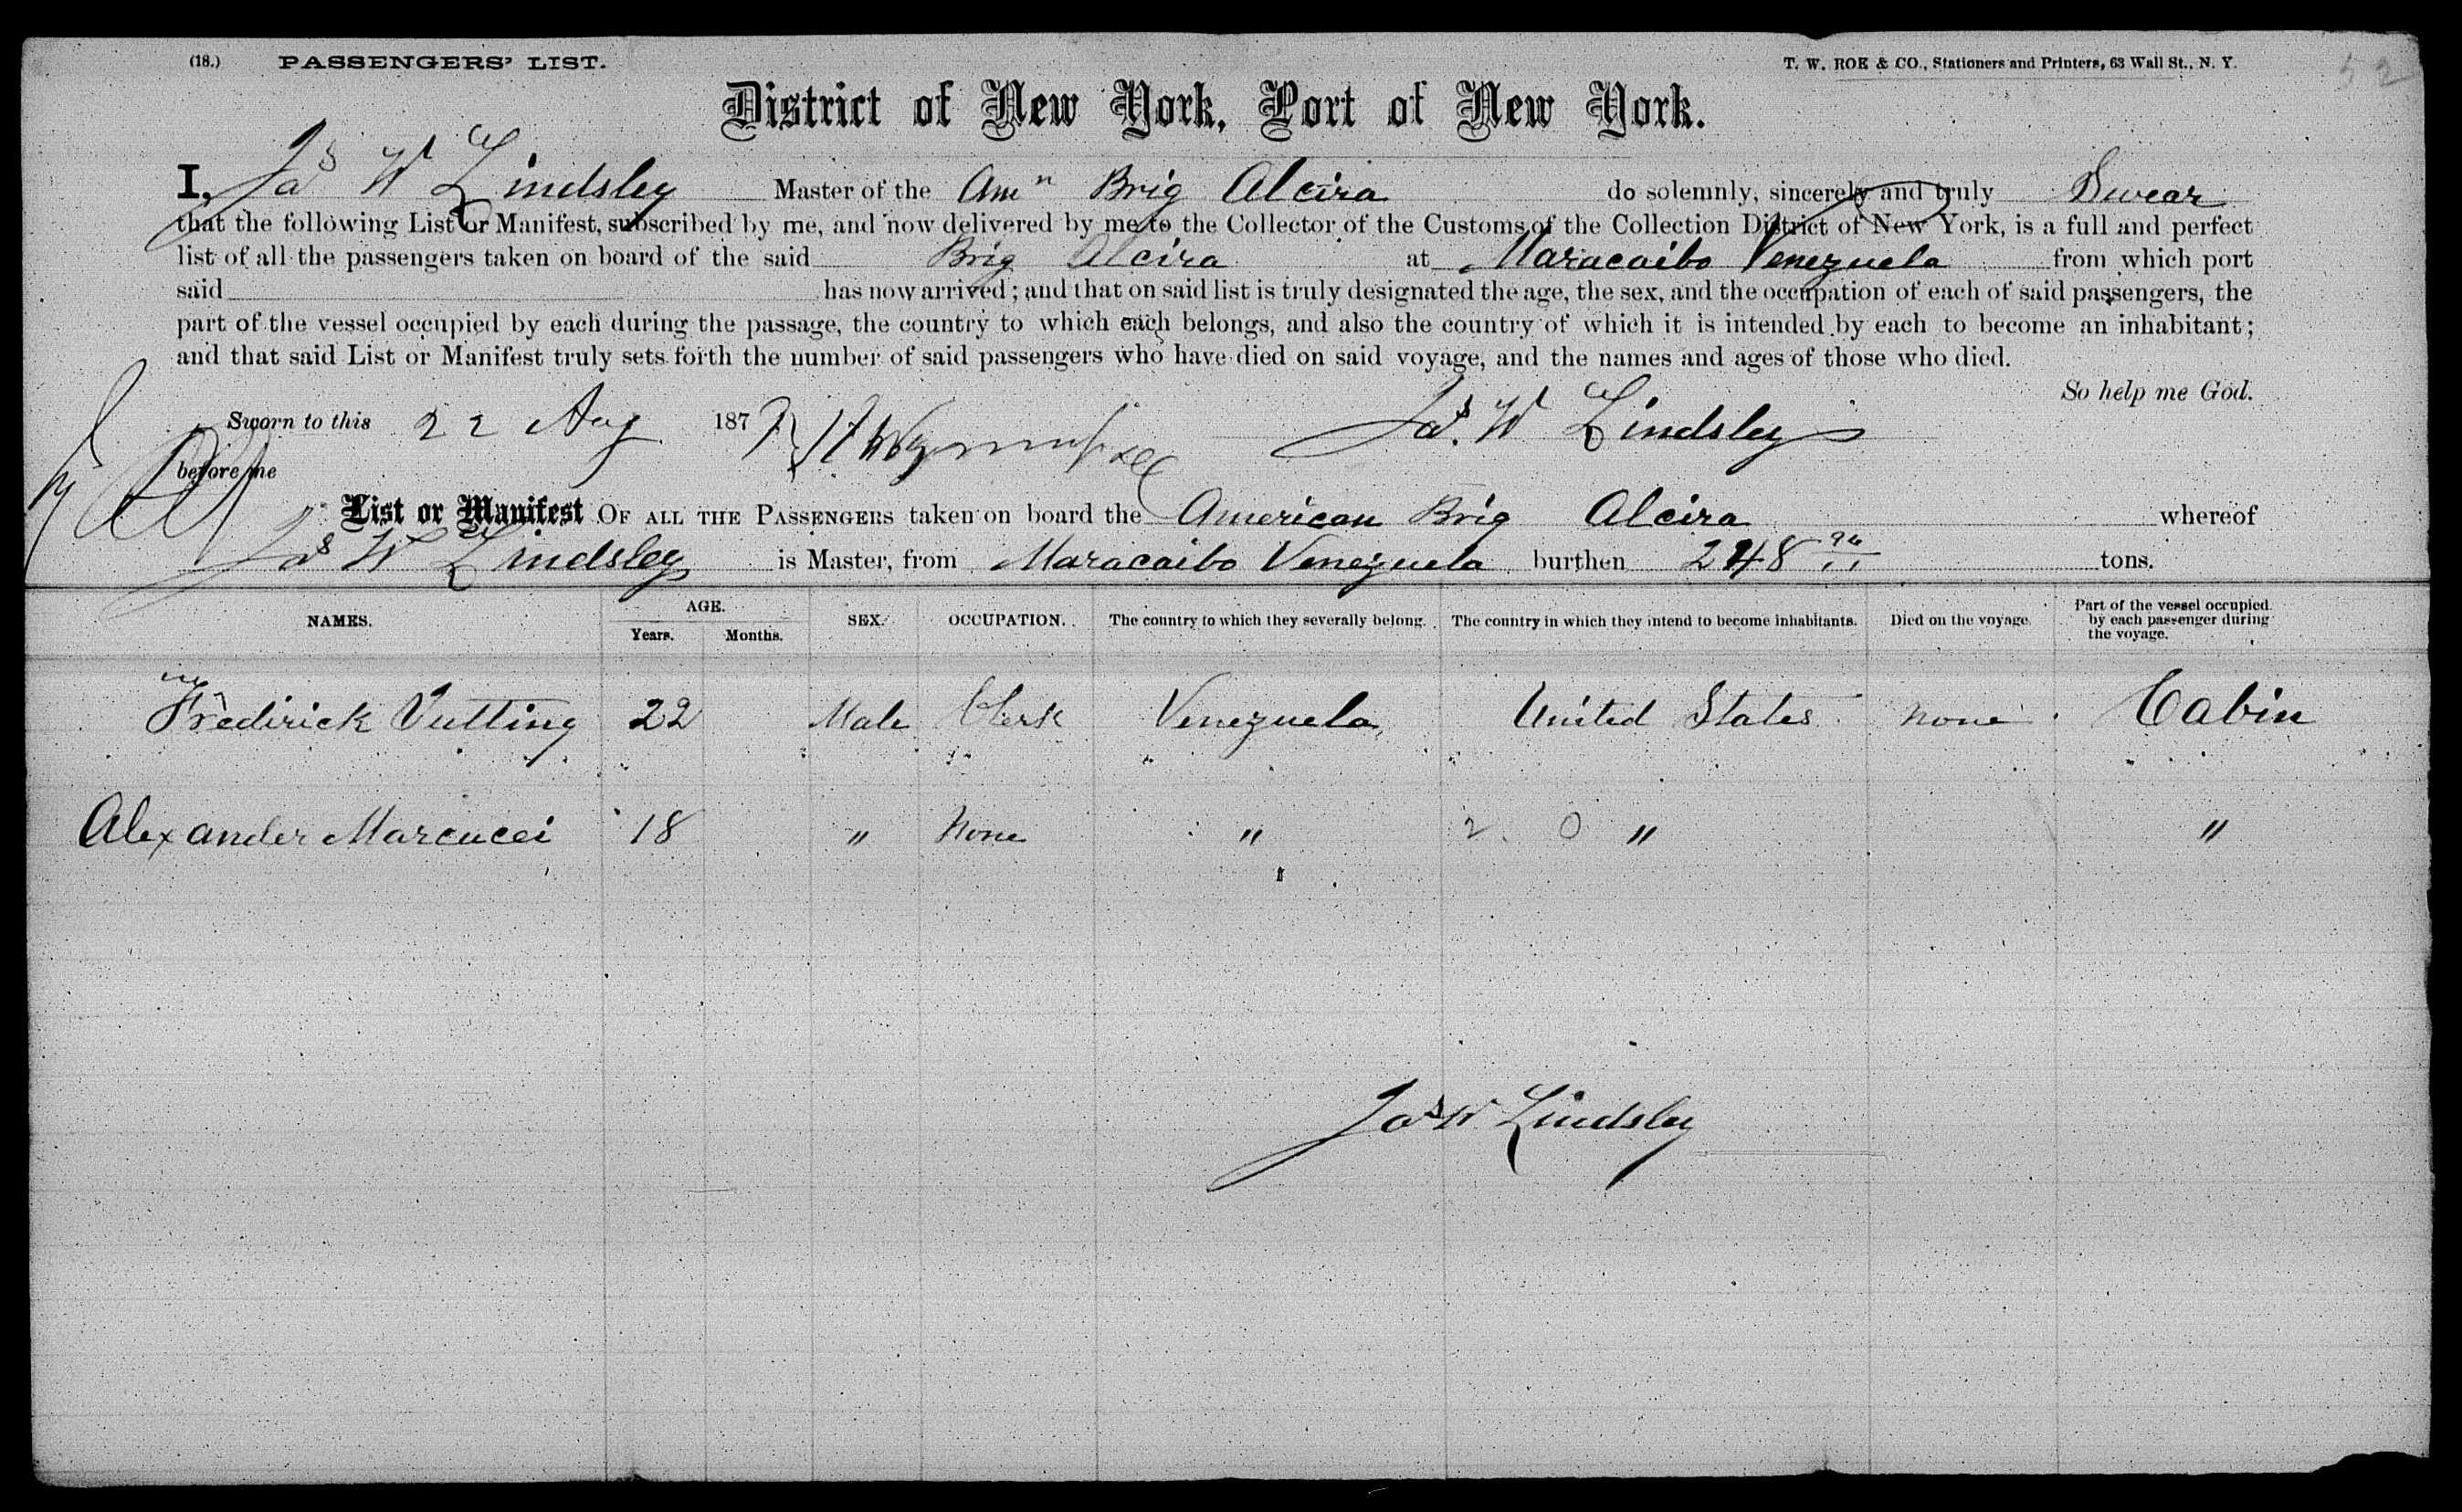 (18.) PASSENGERS' LIST. T. W. ROE & CO., Stationers and Printers, 63 Wall St., N. Y. 52
District of New York, Port of New York.
I, Jas W Lindsley Master of the Amn Brig Alcira do solemnly, sincerely and truly Swear
that the following List or Manifest, subscribed by me, and now delivered by me to the Collector of the Customs of the Collection District of New York, is a full and perfect
list of all the passengers taken on board of the said Brig Alcira at Maracaibo Venezuela from which port
said has now arrived; and that on said list is truly designated the age, the sex, and the occupation of each of said passengers, the
part of the vessel occupied by each during the passage, the country to which each belongs, and also the country of which it is intended by each to become an inhabitant;
and that said List or Manifest truly sets forth the number of said passengers who have died on said voyage, and the names and ages of those who died.
So help me God.
Sworn to this 22 Aug 187 Jas. W Lindsley
before me
List or Manifest OF ALL THE PASSENGERS taken on board the American Brig Alcira whereof
Jas W Lindsley is Master, from Maracaibo Venezuela burthen 248 tons.
NAMES. AGE. Years. Months. SEX. OCCUPATION. The country to which they severally belong. The country in which they intend to become inhabitants. Died on the voyage. Part of the vessel occupied by each passenger during the voyage.
Fredirick Vutting 22 Male Clerk Venezuela United States none Cabin
Alexander Marcucci 18 " None " " "
Jas W Lindsley